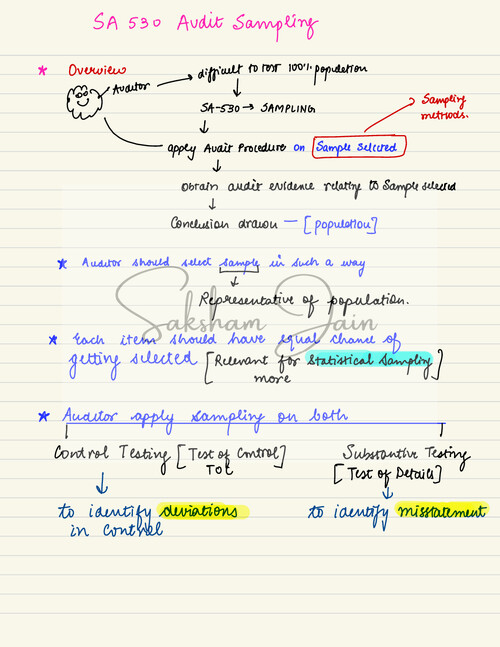 SA 530 Audit Sampling
* Overview
Auditor → difficult to test 100% population
SA-530 → SAMPLING
Sampling methods.
apply Audit Procedure on Sample Selected
Obtain audit evidence relating to Sample selected
Conclusion drawn — [population]
* Auditor should select sample in such a way
Representative of population.
Saksham Jain
* Each item should have equal chance of
getting selected [Relevant for Statistical Sampling]
more
* Auditor apply sampling on both
Control Testing [Test of Control] Substantive Testing
TOC [Test of Details]
to identify deviations to identify misstatement
in control